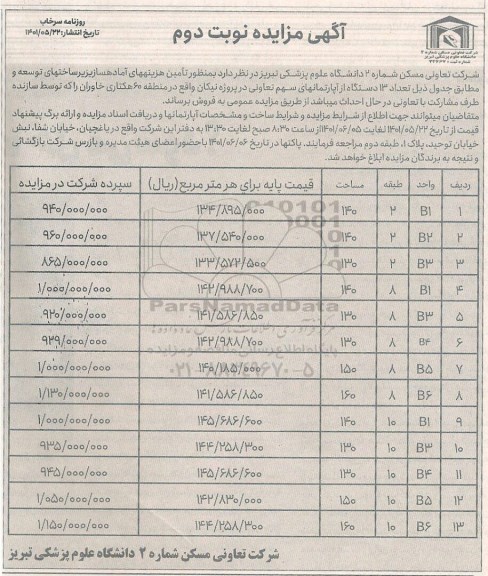 روزنامه سرخاب
تاریخ انتشار: ۱۴۰۱/۰۵/۲۲
آگهی مزایده نوبت دوم
شرکت تعاونی مسکن شماره ۲
دانشگاه علوم پزشکی تبریز
شرکت تعاونی مسکن شماره ۲ دانشگاه علوم پزشکی تبریز در نظر دارد بمنظور تأمین هزینههای آماده‌سازیزیرساختهای توسعه و
مطابق جدول ذیل تعداد ۱۳ دستگاه از آپارتمانهای سهم تعاونی در پروژه نیکان واقع در منطقه ۶۰ هکتاری خاوران را که توسط سازنده
طرف مشارکت با تعاونی در حال احداث میباشد از طریق مزایده عمومی به فروش برساند.
متقاضیان میتوانند جهت اطلاع از شرایط مزایده و شرایط ساخت و مشخصات آپارتمانها و دریافت اسناد مزایده و ارائه برگ پیشنهاد
قیمت از تاریخ ۱۴۰۱/۰۵/۲۲ لغایت ۱۴۰۱/۰۶/۰۵ از ساعت ۸:۳۰ صبح لغایت ۱۳:۳۰ به دفتر این شرکت واقع در باغچیان، خیابان شفا، نبش
خیابان توحید، پلاک ۱، طبقه دوم مراجعه فرمایند. پاکتها در تاریخ ۱۴۰۱/۰۶/۰۶ با حضور اعضای هیئت مدیره و بازرس شرکت بازگشائی
و نتیجه به برندگان مزایده ابلاغ خواهد شد.
ردیف واحد طبقه مساحت قیمت پایه برای هر متر مربع (ریال) سپرده شرکت در مزایده
۱ B۱ ۲ ۱۴۰ ۱۳۴/۸۹۵/۰۰۰ ۹۴۰/۰۰۰/۰۰۰
۲ B۲ ۲ ۱۴۰ ۱۳۷/۵۴۰/۰۰۰ ۹۶۰/۰۰۰/۰۰۰
۳ B۳ ۲ ۱۳۰ ۱۳۳/۵۷۲/۵۰۰ ۸۶۵/۰۰۰/۰۰۰
۴ B۱ ۸ ۱۴۰ ۱۴۲/۹۸۸/۷۰۰ ۱/۰۰۰/۰۰۰/۰۰۰
۵ B۳ ۸ ۱۳۰ ۱۴۱/۵۸۶/۸۵۰ ۹۲۰/۰۰۰/۰۰۰
۶ B۴ ۸ ۱۳۰ ۱۴۲/۹۸۸/۷۰۰ ۹۲۹/۰۰۰/۰۰۰
۷ B۵ ۸ ۱۵۰ ۱۴۰/۱۸۵/۰۰۰ ۱/۰۰۰/۰۰۰/۰۰۰
۸ B۶ ۸ ۱۶۰ ۱۴۱/۵۸۶/۸۵۰ ۱/۱۳۰/۰۰۰/۰۰۰
۹ B۱ ۱۰ ۱۴۰ ۱۴۵/۶۸۶/۶۰۰ ۱/۰۰۰/۰۰۰/۰۰۰
۱۰ B۳ ۱۰ ۱۳۰ ۱۴۴/۲۵۸/۳۰۰ ۹۳۵/۰۰۰/۰۰۰
۱۱ B۴ ۱۰ ۱۳۰ ۱۴۵/۶۸۶/۶۰۰ ۹۴۵/۰۰۰/۰۰۰
۱۲ B۵ ۱۰ ۱۵۰ ۱۴۲/۸۳۰/۰۰۰ ۱/۰۵۰/۰۰۰/۰۰۰
۱۳ B۶ ۱۰ ۱۶۰ ۱۴۴/۲۵۸/۳۰۰ ۱/۱۵۰/۰۰۰/۰۰۰
ParsNamadData
۰۲۱-۸۸۳۴۹۶۷۰-۵
شرکت تعاونی مسکن شماره ۲ دانشگاه علوم پزشکی تبریز